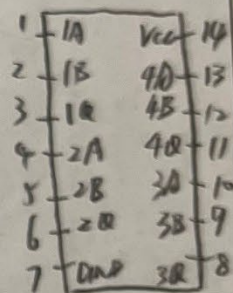 1 1A Vcc 14
2 1B 4A 13
3 1Q 4B 12
4 2A 4Q 11
5 2B 3A 10
6 2Q 3B 9
7 GND 3Q 8